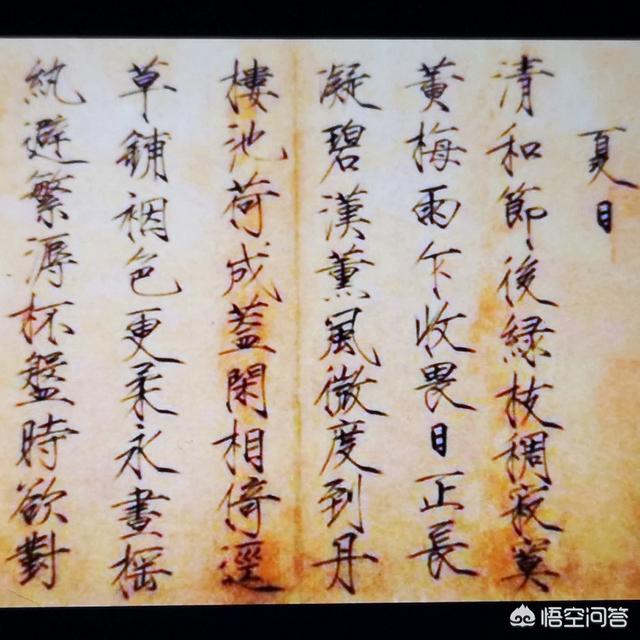 夏日
清和節後緑枝稠寂寞
黃梅雨乍收畏日正長
凝碧漢薰風微度到丹
樓池荷成蓋閑相倚逕
草鋪裀色更柔永晝搖
紈避繁溽杯盤時欲對
悟空问答